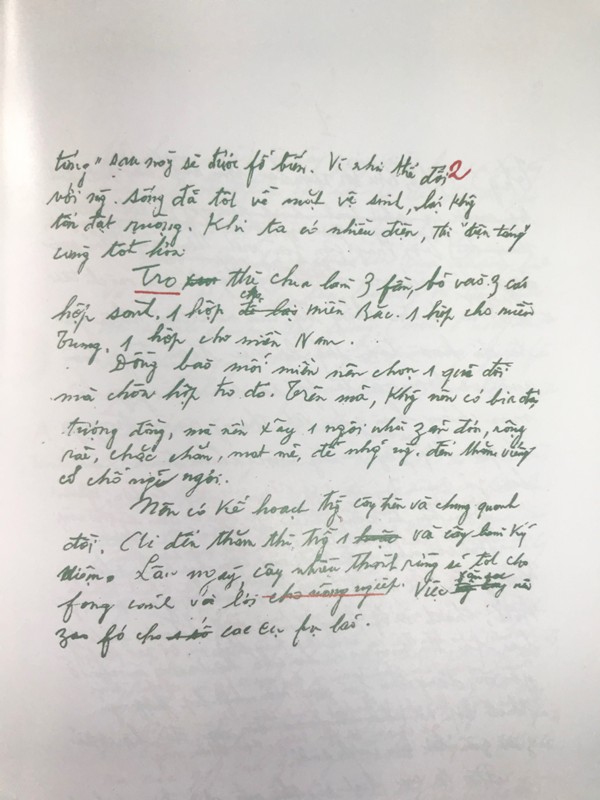 táng" sau này sẽ được fổ biến. Vì như thế đối 2
với ng. sống đã tốt về mặt vệ sinh, lại khg
tốn đất ruộng. Khi ta có nhiều điện, thì "điện táng"
càng tốt hơn.
Tro thì chia làm 3 fần, bỏ vào 3 cái
hộp sành. 1 hộp cho miền Bắc. 1 hộp cho miền
Trung, 1 hộp cho miền Nam.
Đồng bào mỗi miền nên chọn 1 quả đồi
mà chôn hộp tro đó. Trên mả, khg nên có bia đá
tượng đồng, mà nên xây 1 ngôi nhà zản đơn, rộng
rãi, chắc chắn, mát mẻ, để nhg ng. đến thăm viếng
có chỗ nghỉ ngơi.
Nên có kế hoạch trg cây trên và chung quanh
đồi. Ai đến thăm thì trg 1 vài cây làm kỷ
niệm. Lâu ngày, cây nhiều thành rừng sẽ tốt cho
fong cảnh và lợi cho nông nghiệp. Việc săn sóc nên
zao fó cho các cụ fụ lão.